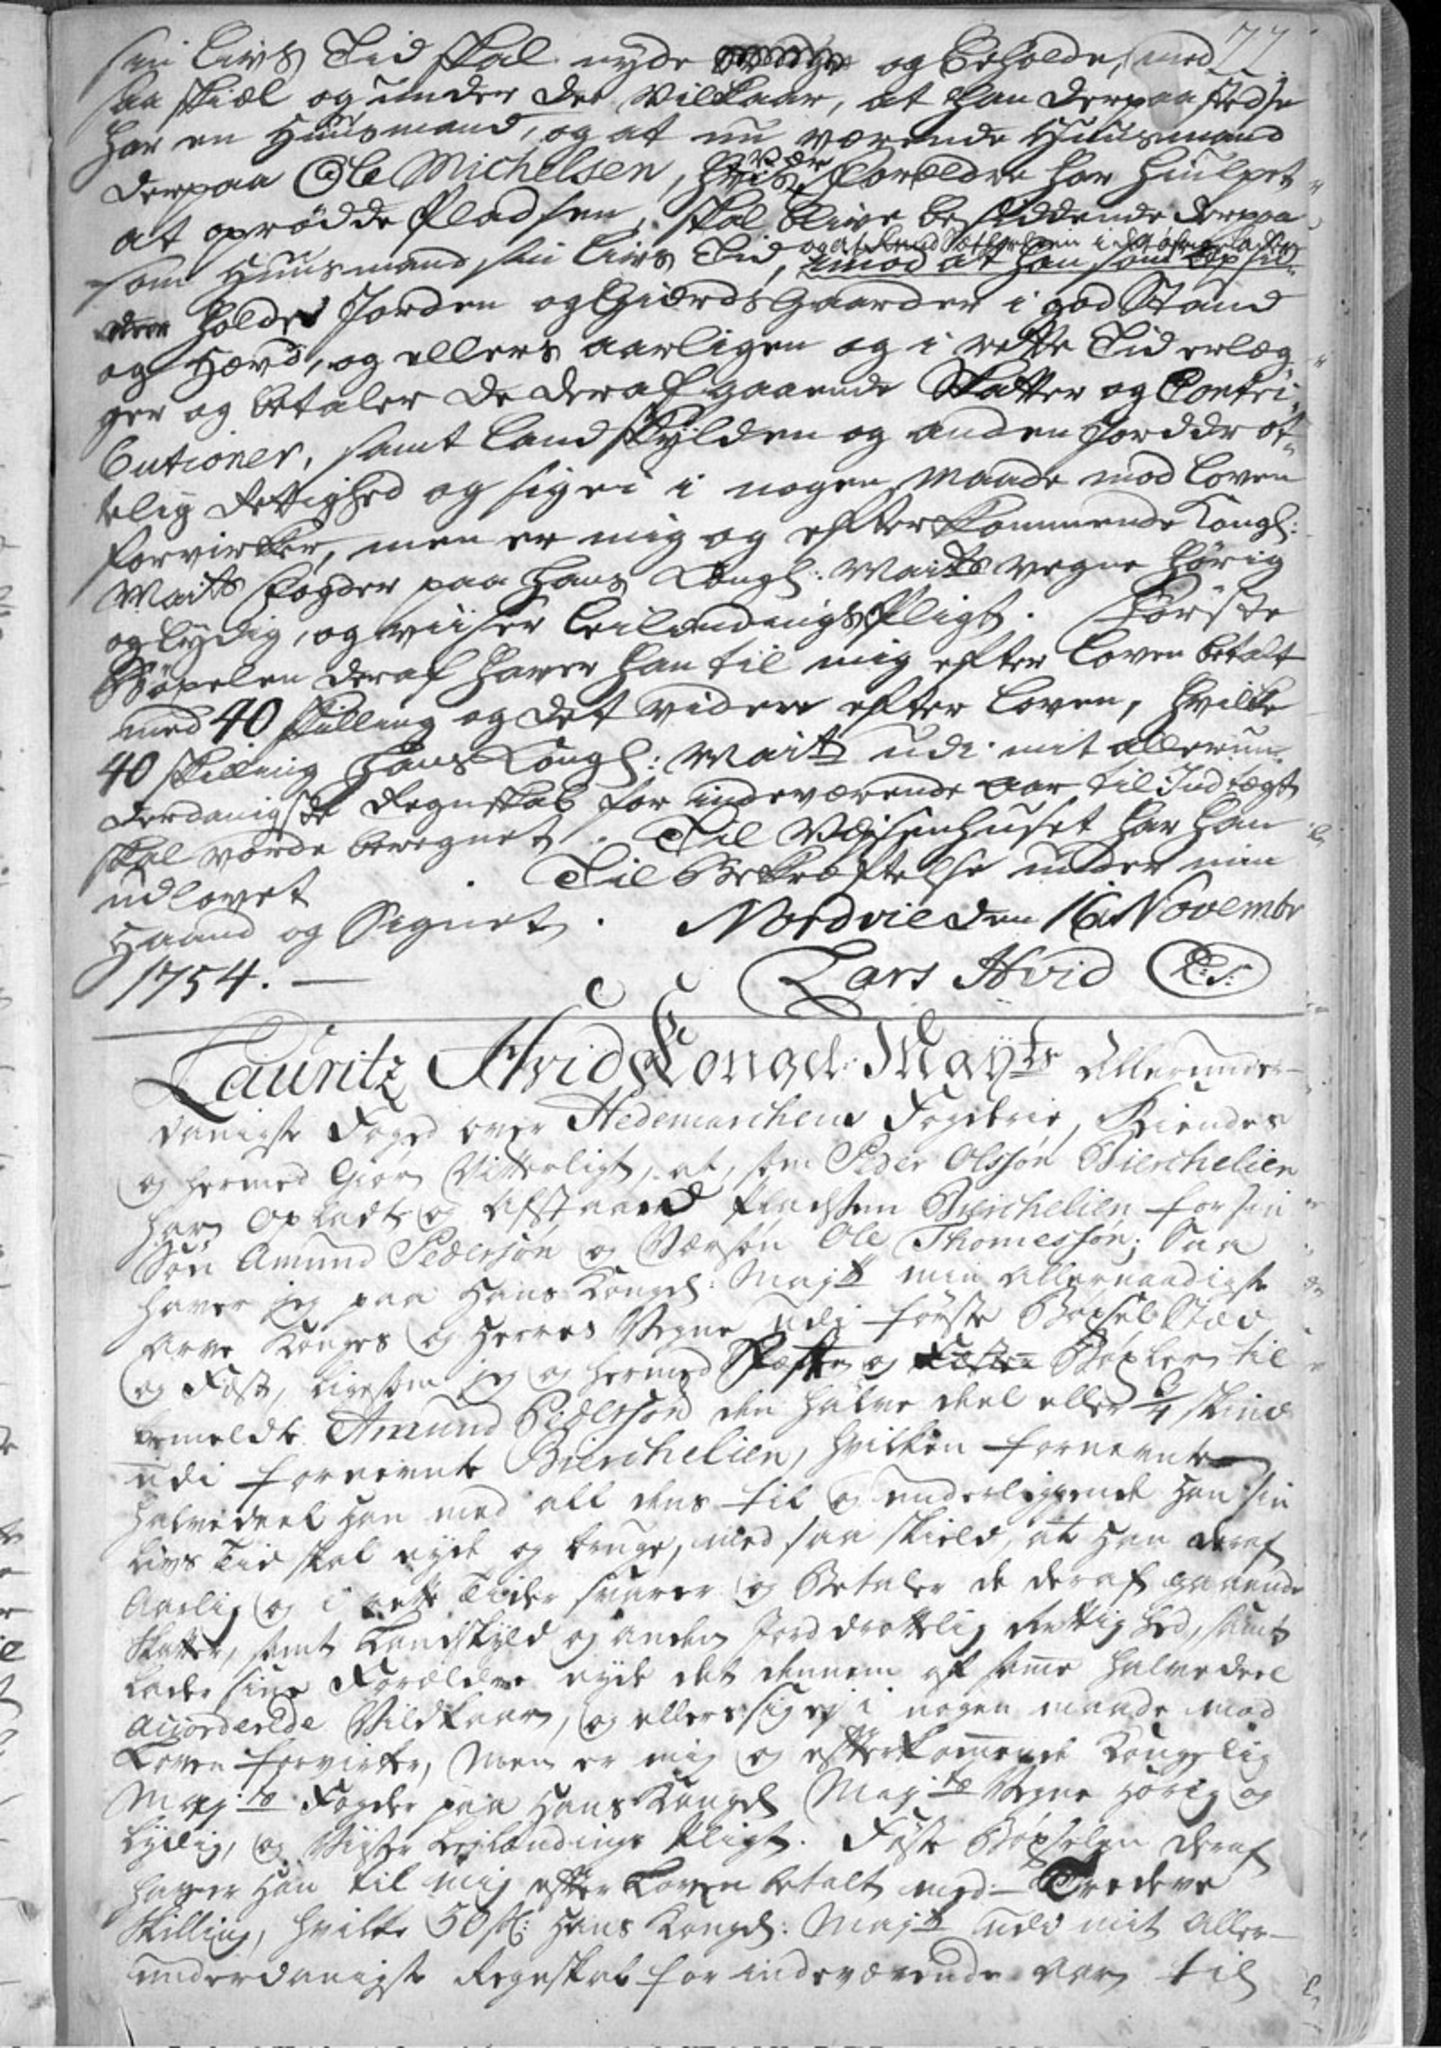 77
sin Livs Tid skal nyde og beholde, med
saa skiæl og under dee Vilkaar, at han derpaa stedse
har en Huusmand, og at nu værende Huusmand
derpaa Ole Michelsen, hvis Forældre har hiulpet
at oprödde Pladsen, skal blive besiddende derpaa
som Huusmand sin Livs Tid, mod at han som
holder Jorden og Giærdsgaarder i god Stand
og Hævd, og ellers aarligen og i rette Tid erlæg
ger og betaler de deraf gaaende Skatter og Contri
butioner, samt Landskylden og anden Jorddrot-
telig Rettighed og sig ei i nogen Maade mod Loven
forvirker, men er mig og efterkommende Kongl:
Maits Fogder paa Hans Kongl: Maits vegne hörig
og lydig, og viiser Leilendings Pligt. Förste
Böxelen deraf haver han til mig efter Loven betalt
med 40 skilling og det videre efter Loven, hvilke
40 skilling Hans Kongl: Mait udi mit allerun-
derdanigste Regnskab for indeværende aar til Indtægt
skal vorde beregnet. Til Waisenhuset har han
udlovet . Til Bekræftelse under min
Haand og Signet. Nordvie den 16 Novembr
1754. — Lars Hvid L:S:
Lauritz Hvid Kongel: Mayts Allerunder-
danigste Foged over Hedemarchens Fogderie, Kiendes
og hermed Giør Vitterligt, at, som Peder Olssøn Bierchelien
har Opladt og Afstaaed Pladssen Bierchelien for sin
Søn Amund Pedersøn og Værsøn Ole Thomessøn; Saa
haver jeg paa Hans Kongel: Majts min Allernaadigste
Arve Konges og Herres Vegne udi første Bøxsel Stæd
og Fæst, ligesom jeg og hermed Stæster og Bøxler til
bemeldte Amund Pedersøn den halve deel eller 3/4 skind
udi fornevnte Bierchelien, hvilken fornevnte
halvedeel han med all dens til og underliggende han sin
Livs Tid skal nyde og bruge, med saa skield, at han deraf
Aarlig og i rette Tider svarer og Betaler de deraf gaaende
Skatter, samt Landskyld og anden Jorddrottelig Rettighed, samt
lader sine Forældre nyde det dennem af samme halvedeel
Accorderede Vildkaar, og ellers sig ej i nogen maade mod
Loven forvirker, men er mig og efterkommende Kongelig
Majts Fogder paa Hans Kongel Majts Vegne hörig og
Lydig, og Viiser Leylændings Pligt. Første Bøxselen deraf
haver han til mig efter Loven betalt med Tredeve
Skilling, hvilke 30 s: Hans Kongel: Majt udi mit Aller-
underdanigste Regnskab for indeværende Aar til